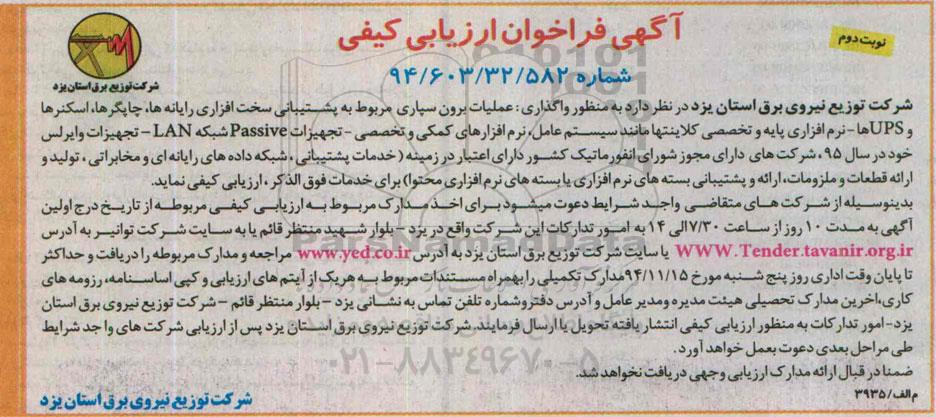 آگهی فراخوان ارزیابی کیفی
نوبت دوم
شماره ۹۴/۶۰۳/۳۲/۵۸۲
شرکت توزیع برق استان یزد
شرکت توزیع نیروی برق استان یزد در نظر دارد به منظور واگذاری: عملیات برون سپاری مربوط به پشتیبانی سخت افزاری رایانه ها، چاپگرها، اسکنرها
و UPSها - نرم افزاری پایه و تخصصی کلاینتها مانند سیستم عامل، نرم افزارهای کمکی و تخصصی - تجهیزات Passive شبکه LAN - تجهیزات وایرلس
خود در سال ۹۵، شرکت های دارای مجوز شورای انفورماتیک کشور دارای اعتبار در زمینه (خدمات پشتیبانی، شبکه داده های رایانه ای و مخابراتی، تولید و
ارائه قطعات و ملزومات، ارائه و پشتیبانی بسته های نرم افزاری یا بسته های نرم افزاری محتوا) برای خدمات فوق الذکر، ارزیابی کیفی نماید.
بدینوسیله از شرکت های متقاضی واجد شرایط دعوت میشود برای اخذ مدارک مربوط به ارزیابی کیفی مربوطه از تاریخ درج اولین
آگهی به مدت ۱۰ روز از ساعت ۷/۳۰ الی ۱۴ به امور تدارکات این شرکت واقع در یزد - بلوار شهید منتظر قائم یا به سایت شرکت توانیر به آدرس
WWW.Tender.tavanir.org.ir یا سایت شرکت توزیع برق استان یزد به آدرس www.yed.co.ir مراجعه و مدارک مربوطه را دریافت و حداکثر
تا پایان وقت اداری روز پنج شنبه مورخ ۹۴/۱۱/۱۵ مدارک تکمیلی را بهمراه مستندات مربوط به هریک از آیتم های ارزیابی و کپی اساسنامه، رزومه های
کاری، اخرین مدارک تحصیلی هیئت مدیره ومدیر عامل و آدرس دفتر وشماره تلفن تماس به نشانی یزد - بلوار منتظر قائم - شرکت توزیع نیروی برق استان
یزد - امور تدارکات به منظور ارزیابی کیفی انتشار یافته تحویل یا ارسال فرمایند. شرکت توزیع نیروی برق استان یزد پس از ارزیابی شرکت های واجد شرایط
طی مراحل بعدی دعوت بعمل خواهد آورد.
ضمنا در قبال ارائه مدارک ارزیابی وجهی دریافت نخواهد شد.
م الف/۳۹۳۵
شرکت توزیع نیروی برق استان یزد
ParsNamadData
۰۲۱-۸۸۳۴۹۶۷۰-۵